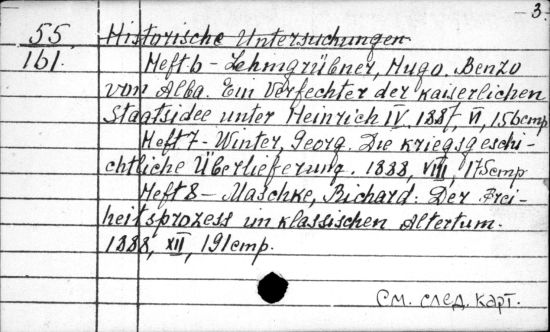 - 3.
55
161.
Historische Untersuchungen
Heft 6 - Lehmgrübner, Hugo. Benzo
von Alba. Ein Verfechter der kaiserlichen
Staatsidee unter Heinrich IV. 1887, VI, 156стр
Heft 7 - Winter, Georg. Die kriegsgeschi-
chtliche Überlieferung. 1888, VIII, 175стр
Heft 8 - Maschke, Richard: Der Frei-
heitsprozess im klassischen Altertum.
1888, XII, 191стр.
См. след. карт.